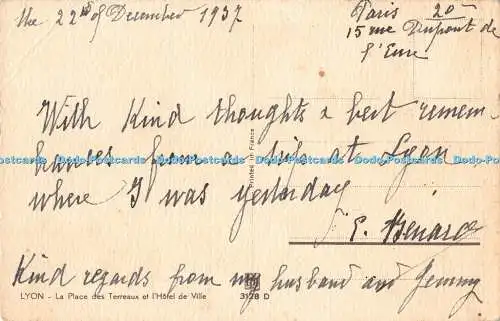 the 22nd of December 1937
Paris 20
15 rue Dupont de
l'Eure
With kind thoughts & best remem-
brances from a trip at Lyon
where I was yesterday
E. Menard
Kind regards from my husband and Jemmy
LYON - La Place des Terreaux et l'Hôtel de Ville
3128 D
Printed in France
Dodo-Postcards Dodo-Postcards Dodo-Postcards Dodo-Postcards Dodo-Postcards